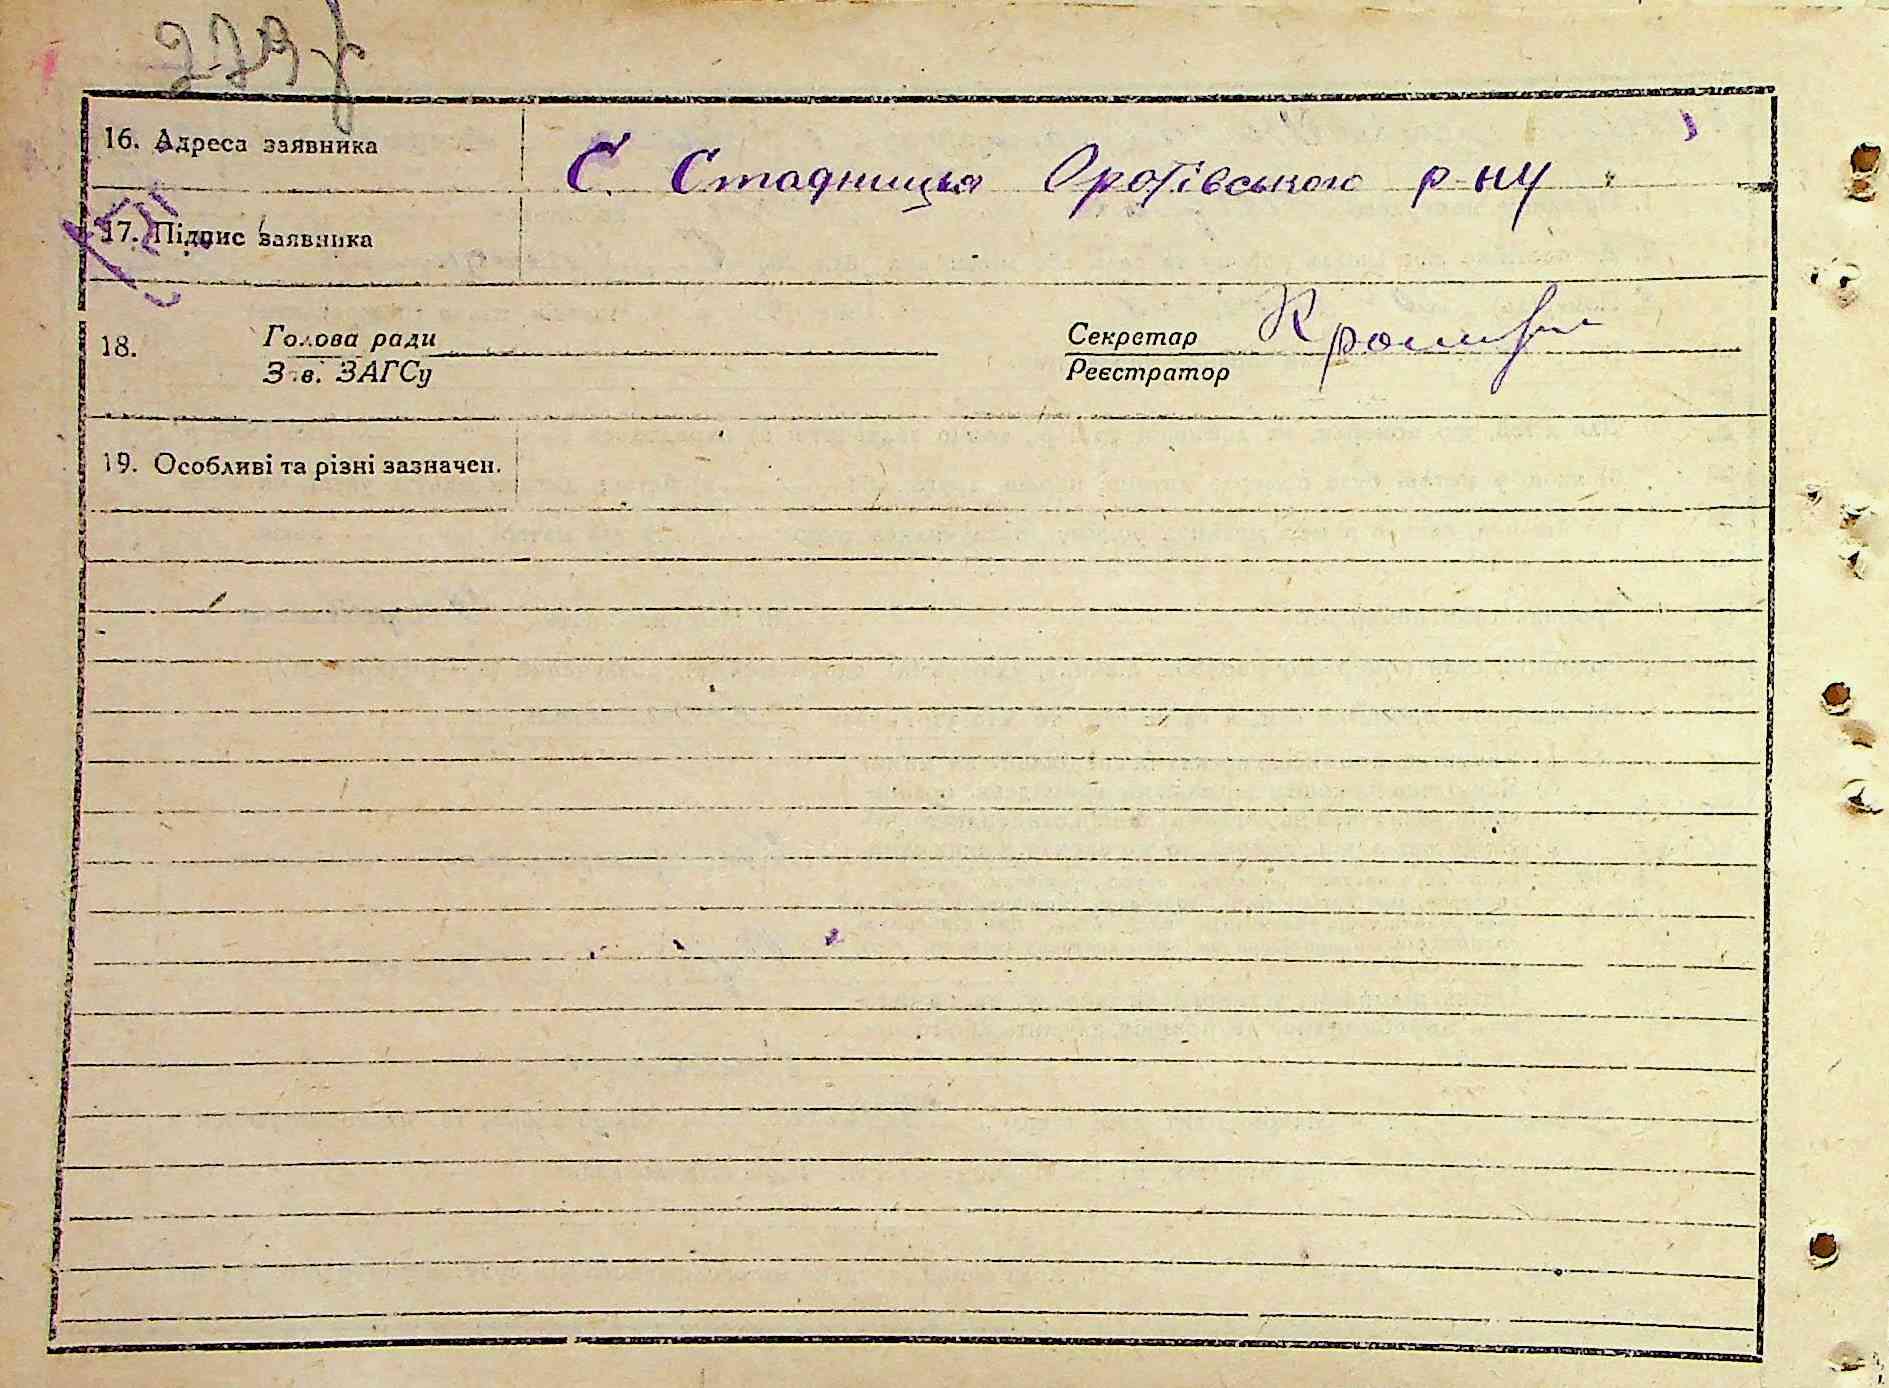 16. Адреса заявника С. Стадниця Оратівського р-ну
17. Підпис заявника
18. Голова ради Секретар
Зав. ЗАГСу Реєстратор
19. Особливі та різні зазначен.